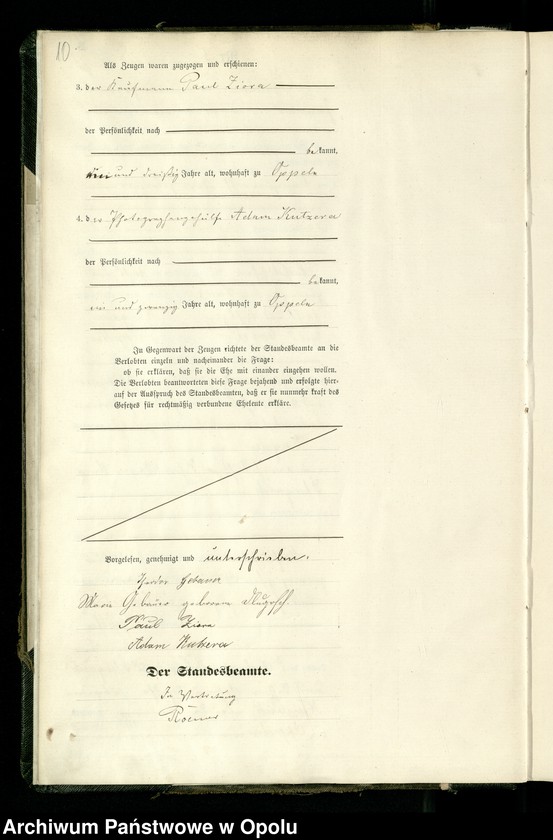 10
Als Zeugen waren zugezogen und erschienen:
3. der Kaufmann Paul Ziora
der Persönlichkeit nach
bekannt,
und dreißig Jahre alt, wohnhaft zu Oppeln
4. der Photographengehülfe Adam Kutzera
der Persönlichkeit nach
bekannt,
ein und zwanzig Jahre alt, wohnhaft zu Oppeln
In Gegenwart der Zeugen richtete der Standesbeamte an die
Verlobten einzeln und nacheinander die Frage:
ob sie erklären, daß sie die Ehe mit einander eingehen wollen.
Die Verlobten beantworteten diese Frage bejahend und erfolgte hier-
auf der Ausspruch des Standesbeamten, daß er sie nunmehr kraft des
Gesetzes für rechtmäßig verbundene Eheleute erkläre.
Vorgelesen, genehmigt und unterschrieben.
Theodor Gebauer
Gebauer geborene
Paul Ziora
Adam Kutzera
Der Standesbeamte.
In Vertretung
Archiwum Państwowe w Opolu